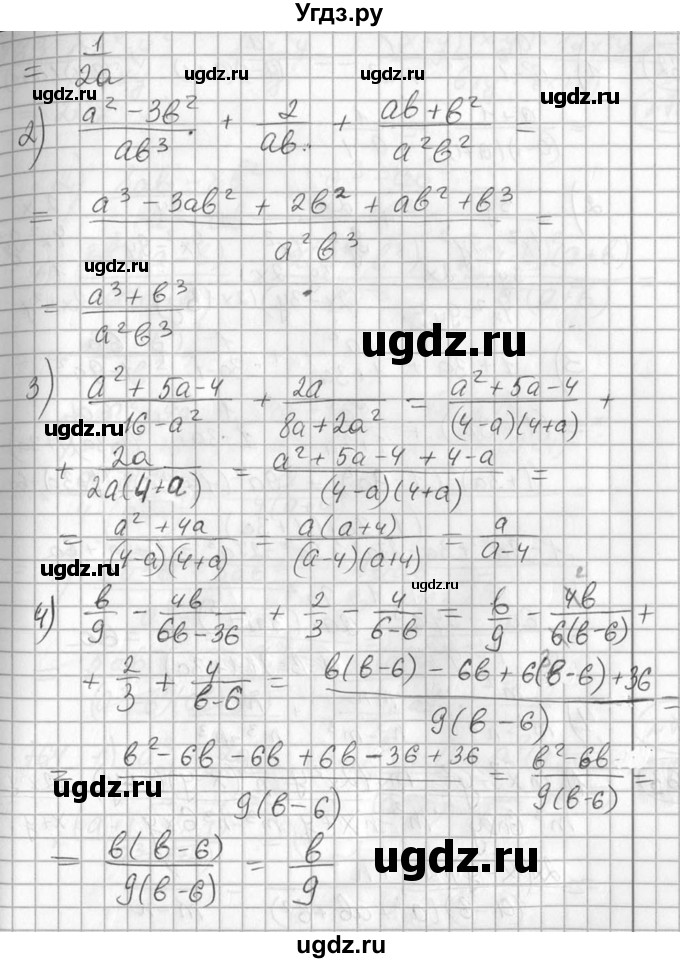 Угдз.ру
= 1/2a
ugdz.ru ugdz.ru ugdz.ru
2) (a² - 3b²)/(ab³) + 2/(ab) + (ab + b²)/(a²b²) =
= (a³ - 3ab² + 2b² + ab² + b³)/(a²b³) =
ugdz.ru
= (a³ + b³)/(a²b³)
ugdz.ru
3) (a² + 5a - 4)/(16 - a²) + 2a/(8a + 2a²) = (a² + 5a - 4)/((4-a)(4+a)) +
ugdz.ru
+ 2a/(2a(4+a)) = (a² + 5a - 4 + 4 - a)/((4-a)(4+a)) =
= (a² + 4a)/((4-a)(4+a)) = (a(a+4))/((a-4)(a+4)) = a/(a-4)
ugdz.ru ugdz.ru
4) b/9 - 4b/(6b - 36) + 2/3 - 4/(6-b) = b/9 - 4b/(6(b-6)) +
+ 2/3 + 4/(b-6) = (b(b-6) - 6b + 6(b-6) + 36)/(9(b-6)) =
= (b² - 6b - 6b + 6b - 36 + 36)/(9(b-6)) = (b² - 6b)/(9(b-6)) =
ugdz.ru ugdz.ru
= (b(b-6))/(9(b-6)) = b/9
ugdz.ru
ugdz.ru ugdz.ru
ugdz.ru